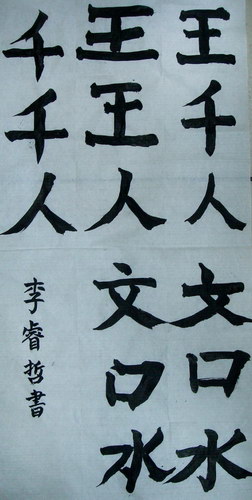 王千人文口水
王王人文口水
千千人
李睿哲書